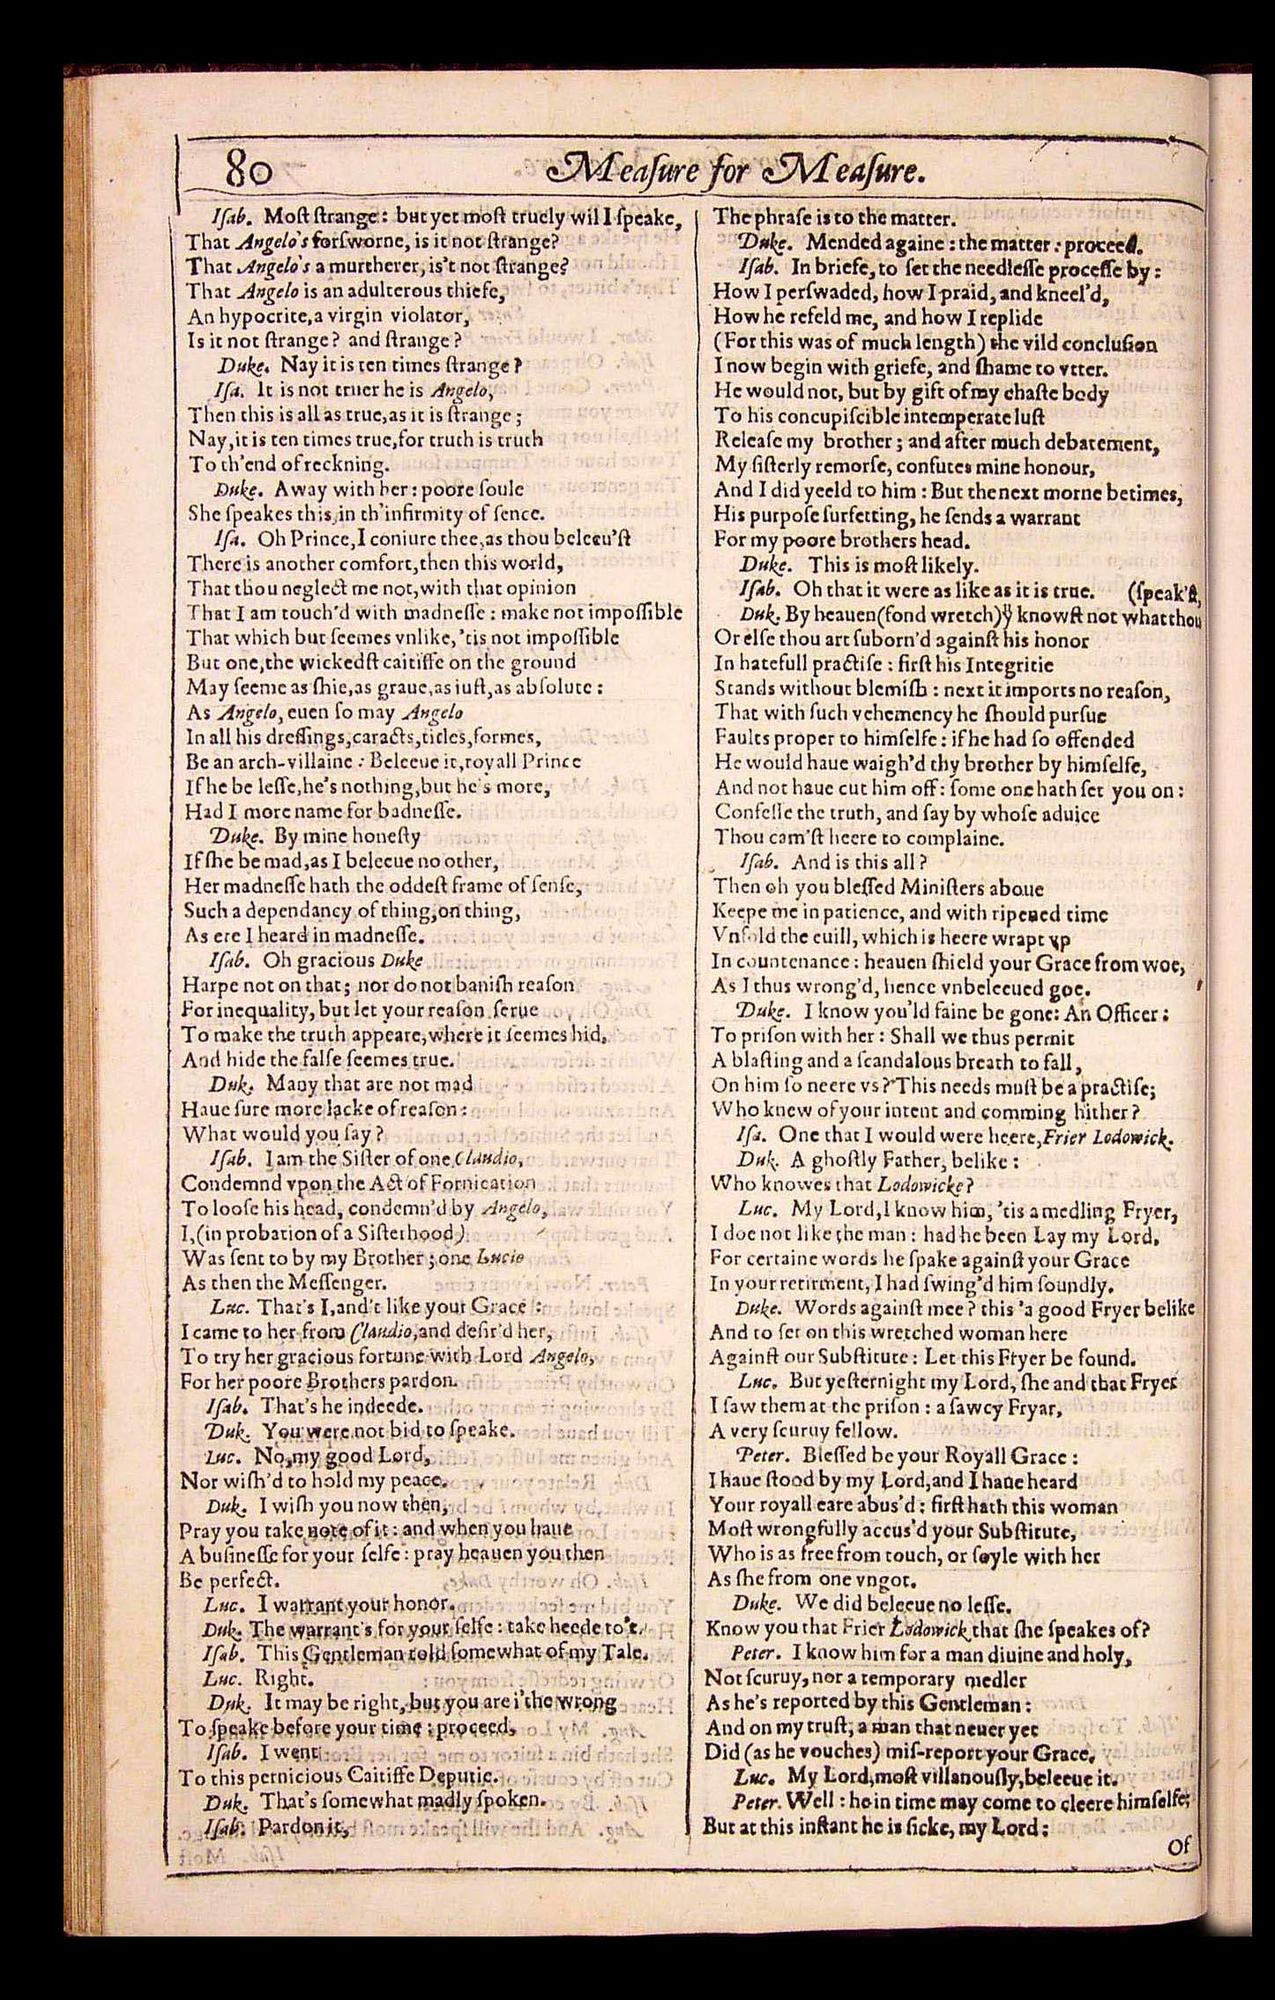 80
Meaſure for Meaſure.
Iſab. Moſt ſtrange: but yet moſt truely wil I ſpeake,
That Angelo's forſworne, is it not ſtrange?
That Angelo's a murtherer, is't not ſtrange?
That Angelo is an adulterous thiefe,
An hypocrite, a virgin violator,
Is it not ſtrange? and ſtrange?
Duke. Nay it is ten times ſtrange?
Iſa. It is not truer he is Angelo,
Then this is all as true, as it is ſtrange;
Nay, it is ten times true, for truth is truth
To th'end of reckning.
Duke. Away with her: poore ſoule
She ſpeakes this, in th'infirmity of ſence.
Iſa. Oh Prince, I coniure thee, as thou beleeu'ſt
There is another comfort, then this world,
That thou neglect me not, with that opinion
That I am touch'd with madneſſe: make not impoſſible
That which but ſeemes vnlike, 'tis not impoſſible
But one, the wickedſt caitiffe on the ground
May ſeeme as ſhie, as graue, as iuſt, as abſolute:
As Angelo, euen ſo may Angelo
In all his dreſſings, caracts, titles, formes,
Be an arch-villaine: Beleeue it, royall Prince
If he be leſſe, he's nothing, but he's more,
Had I more name for badneſſe.
Duke. By mine honeſty
If ſhe be mad, as I beleeue no other,
Her madneſſe hath the oddeſt frame of ſenſe,
Such a dependancy of thing, on thing,
As ere I heard in madneſſe.
Iſab. Oh gracious Duke
Harpe not on that; nor do not baniſh reaſon
For inequality, but let your reaſon ſerue
To make the truth appeare, where it ſeemes hid,
And hide the falſe ſeemes true.
Duk. Many that are not mad
Haue ſure more lacke of reaſon:
What would you ſay?
Iſab. I am the Siſter of one Claudio,
Condemnd vpon the Act of Fornication
To looſe his head, condemn'd by Angelo,
I, (in probation of a Siſterhood)
Was ſent to by my Brother; one Lucio
As then the Meſſenger.
Luc. That's I, and't like your Grace:
I came to her from Claudio, and deſir'd her,
To try her gracious fortune with Lord Angelo,
For her poore Brothers pardon.
Iſab. That's he indeede.
Duk. You were not bid to ſpeake.
Luc. No, my good Lord,
Nor wiſh'd to hold my peace.
Duk. I wiſh you now then,
Pray you take note of it: and when you haue
A buſineſſe for your ſelfe: pray heauen you then
Be perfect.
Luc. I warrant your honor.
Duk. The warrant's for your ſelfe: take heede to't.
Iſab. This Gentleman told ſomewhat of my Tale.
Luc. Right.
Duk. It may be right, but you are i'the wrong
To ſpeake before your time: proceed,
Iſab. I went
To this pernicious Caitiffe Deputie.
Duk. That's ſomewhat madly ſpoken.
Iſab. Pardon it,
The phraſe is to the matter.
Duke. Mended againe: the matter: proceed.
Iſab. In briefe, to ſet the needleſſe proceſſe by:
How I perſwaded, how I praid, and kneel'd,
How he refeld me, and how I replide
(For this was of much length) the vild concluſion
I now begin with griefe, and ſhame to vtter.
He would not, but by gift of my chaſte body
To his concupiſcible intemperate luſt
Releaſe my brother; and after much debatement,
My ſiſterly remorſe, confutes mine honour,
And I did yeeld to him: But the next morne betimes,
His purpoſe ſurfetting, he ſends a warrant
For my poore brothers head.
Duke. This is moſt likely.
Iſab. Oh that it were as like as it is true. (ſpeak'ſt,
Duk. By heauen (fond wretch) yͧ knowſt not what thou
Or elſe thou art ſuborn'd againſt his honor
In hatefull practiſe: firſt his Integritie
Stands without blemiſh: next it imports no reaſon,
That with ſuch vehemency he ſhould purſue
Faults proper to himſelfe: if he had ſo offended
He would haue waigh'd thy brother by himſelfe,
And not haue cut him off: ſome one hath ſet you on:
Confeſſe the truth, and ſay by whoſe aduice
Thou cam'ſt heere to complaine.
Iſab. And is this all?
Then oh you bleſſed Miniſters aboue
Keepe me in patience, and with ripened time
Vnfold the euill, which is heere wrapt vp
In countenance: heauen ſhield your Grace from woe,
As I thus wrong'd, hence vnbeleeued goe.
Duke. I know you'ld faine be gone: An Officer:
To priſon with her: Shall we thus permit
A blaſting and a ſcandalous breath to fall,
On him ſo neere vs? This needs muſt be a practiſe;
Who knew of your intent and comming hither?
Iſa. One that I would were heere, Frier Lodowick.
Duk. A ghoſtly Father, belike:
Who knowes that Lodowicke?
Luc. My Lord, I know him, 'tis a medling Fryer,
I doe not like the man: had he been Lay my Lord,
For certaine words he ſpake againſt your Grace
In your retirment, I had ſwing'd him ſoundly.
Duke. Words againſt mee? this 'a good Fryer belike
And to ſet on this wretched woman here
Againſt our Subſtitute: Let this Fryer be found.
Luc. But yeſternight my Lord, ſhe and that Fryer
I ſaw them at the priſon: a ſawcy Fryar,
A very ſcuruy fellow.
Peter. Bleſſed be your Royall Grace:
I haue ſtood by my Lord, and I haue heard
Your royall eare abus'd: firſt hath this woman
Moſt wrongfully accus'd your Subſtitute,
Who is as free from touch, or ſoyle with her
As ſhe from one vngot.
Duke. We did beleeue no leſſe.
Know you that Frier Lodowick that ſhe ſpeakes of?
Peter. I know him for a man diuine and holy,
Not ſcuruy, nor a temporary medler
As he's reported by this Gentleman:
And on my truſt, a man that neuer yet
Did (as he vouches) miſ-report your Grace.
Luc. My Lord, moſt villanouſly, beleeue it.
Peter. Well: he in time may come to cleere himſelfe;
But at this inſtant he is ſicke, my Lord:
Of